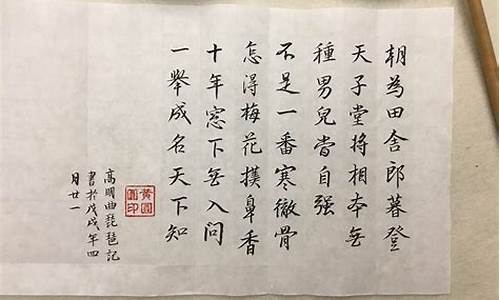 朝為田舍郎暮登
天子堂將相本無
種男兒當自強
不是一番寒徹骨
怎得梅花撲鼻香
十年窓下無人問
一舉成名天下知
高明曲琵琶記
書於戊戌年四
月廿一